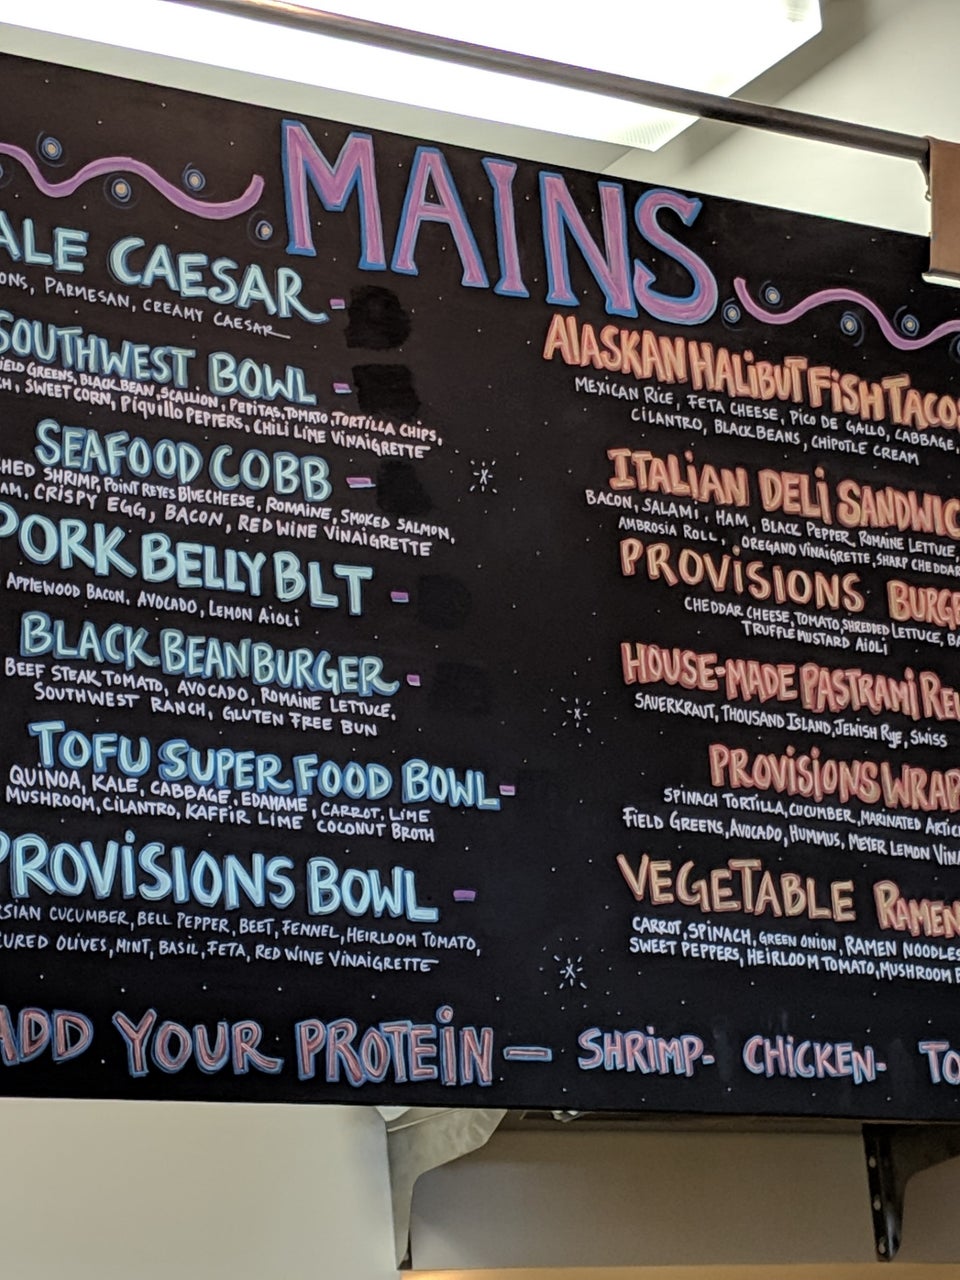 MAINS
ALE CAESAR -
ONS, PARMESAN, CREAMY CAESAR
SOUTHWEST BOWL -
IELD GREENS, BLACK BEAN, SCALLION, PEPITAS, TOMATO, TORTILLA CHIPS,
CH, SWEET CORN, PiQUiLLO PEPPERS, CHILI LIME VINAIGRETTE
SEAFOOD COBB -
CHED SHRIMP, POINT REYES BLUE CHEESE, ROMAINE, SMOKED SALMON,
AM, CRISPY EGG, BACON, RED WINE VINAIGRETTE
PORK BELLY BLT -
APPLEWOOD BACON, AVOCADO, LEMON AIOLI
BLACK BEAN BURGER -
BEEF STEAK TOMATO, AVOCADO, ROMAINE LETTUCE,
SOUTHWEST RANCH, GLUTEN FREE BUN
TOFU SUPER FOOD BOWL -
QUINOA, KALE, CABBAGE, EDAMAME, CARROT, LIME
MUSHROOM, CILANTRO, KAFFIR LIME COCONUT BROTH
PROVISIONS BOWL -
RSIAN CUCUMBER, BELL PEPPER, BEET, FENNEL, HEIRLOOM TOMATO,
CURED OLIVES, MINT, BASIL, FETA, RED WINE VINAIGRETTE
ALASKAN HALIBUT FISH TACO
MEXICAN RICE, FETA CHEESE, PICO DE GALLO, CABBAGE,
CILANTRO, BLACK BEANS, CHIPOTLE CREAM
ITALIAN DELI SANDWIC
BACON, SALAMI, HAM, BLACK PEPPER, ROMAINE LETTUCE,
AMBROSIA ROLL, OREGANO VINAIGRETTE, SHARP CHEDDAR
PROVISIONS BURGE
CHEDDAR CHEESE, TOMATO, SHREDDED LETTUCE, BA
TRUFFLE MUSTARD AIOLI
HOUSE-MADE PASTRAMI REU
SAUERKRAUT, THOUSAND ISLAND, JEWISH RYE, SWISS
PROVISIONS WRAP
SPINACH TORTILLA, CUCUMBER, MARINATED ARTIC
FIELD GREENS, AVOCADO, HUMMUS, MEYER LEMON VINA
VEGETABLE RAMEN
CARROT, SPINACH, GREEN ONION, RAMEN NOODLES
SWEET PEPPERS, HEIRLOOM TOMATO, MUSHROOM B
ADD YOUR PROTEIN - SHRIMP- CHICKEN- TO